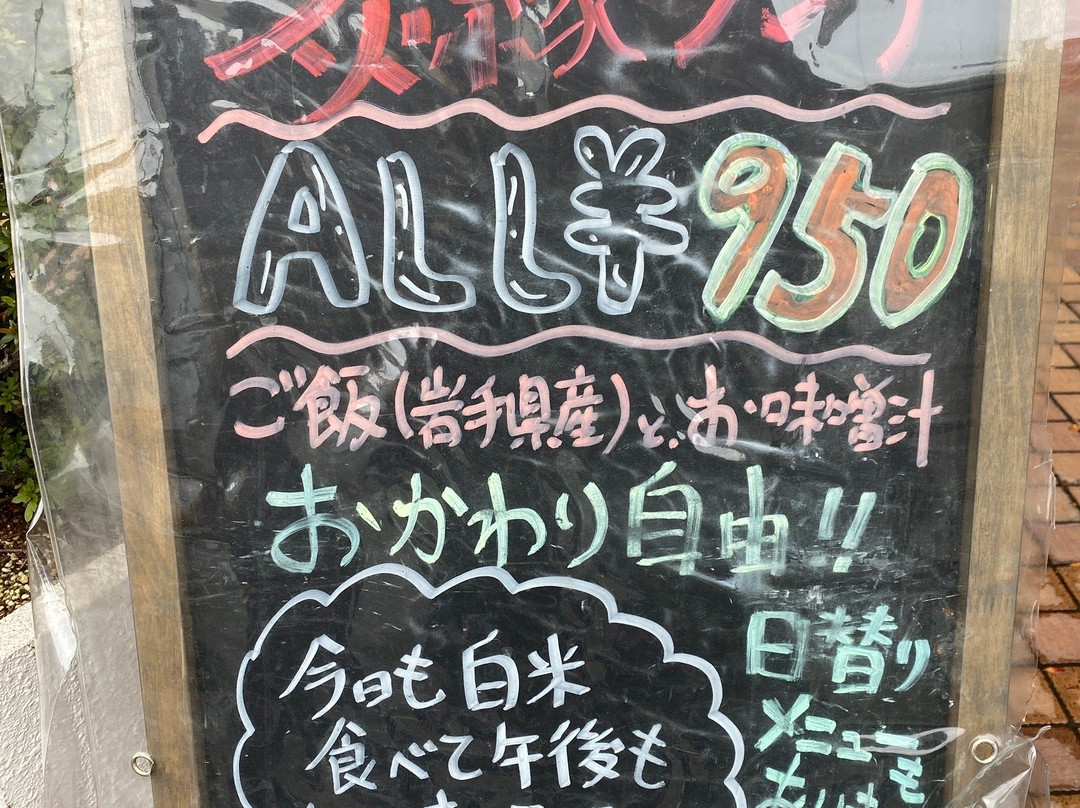 ALL¥950
ご飯(岩手県産)と、お味噌汁
おかわり自由!!
今日も白米
食べて午後も
日替り
メニュー